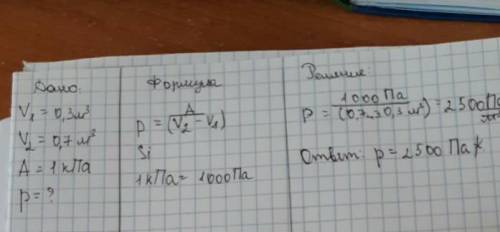 Дано:
V₁ = 0,3 м³
V₂ = 0,7 м³
A = 1 кПа
p = ?
Формула
p = A/(V₂ − V₁)
Si
1 кПа = 1000 Па
Решение:
p = 1000 Па/(0,7 0,3 м³) = 2500 Па
Ответ: p = 2500 Па